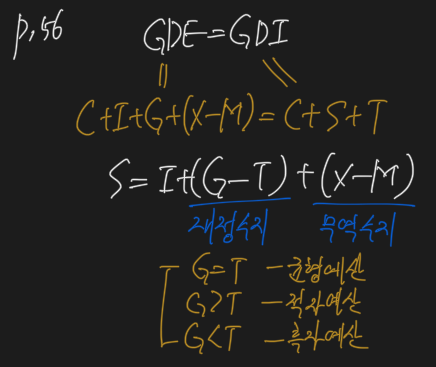 p.56
GDE=GDI
C+I+G+(X-M)=C+S+T
S=I+(G-T)+(X-M)
재정수지 무역수지
G=T - 균형예산
G>T - 적자예산
G<T - 흑자예산